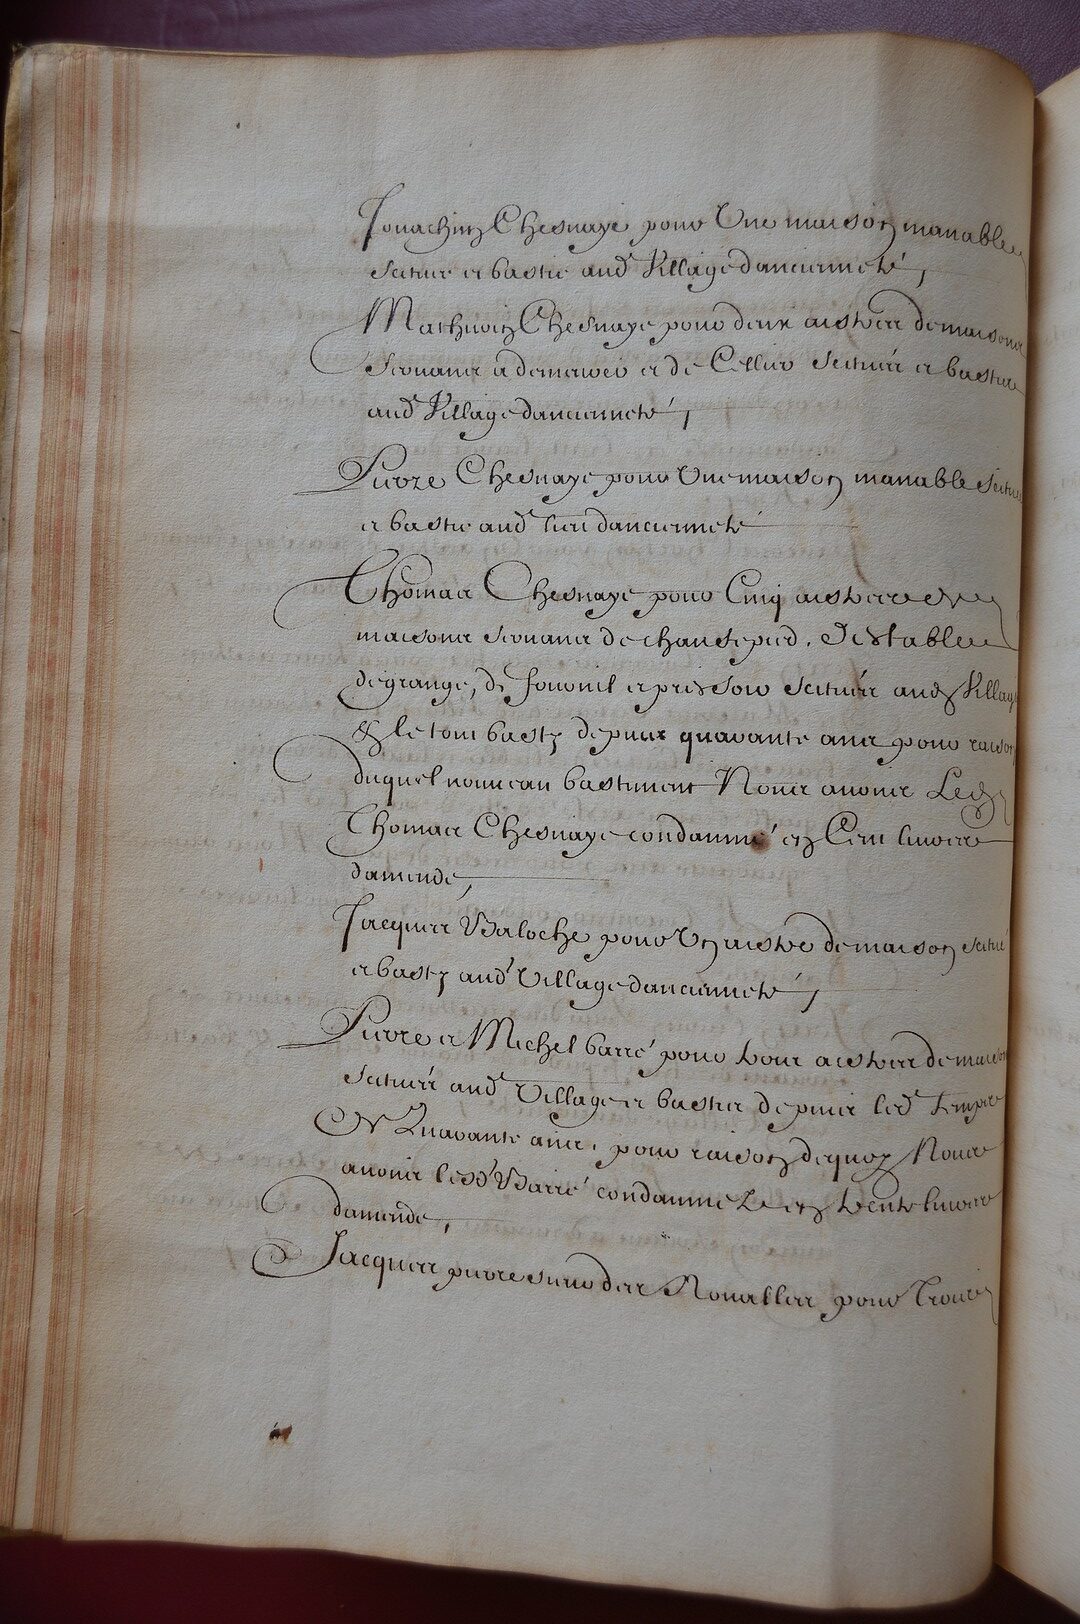 Jouachin Chesnaye pour Une maison manable
scituee et bastie aud Village dancienneté,
Mathurin Chesnaye pour deux aistres de maisons
servans a demeurer et de Cellier scitués et bastie
aud Village dancienneté,
Pierre Chesnaye pour Une maison manable scitue
et bastie aud lieu dancienneté
Thomas Chesnaye pour Cinq aistres de
maisons servans de chaufepied, destable
de grange, de fournil et pressoir scitués aud Village
& le tout basty depuis quarante ans pour raison
duquel nouveau bastiment Nous avons Led
Thomas Chesnaye condamné en Cent livres
damende,
Jacques Baloche pour Un aistre de maison scitué
et basty aud Village dancienneté,
Pierre et Michel Barré pour trois aistres de maison
scitués aud Village et basties depuis led temps
De Quarante ans, pour raison dequoy Nous
avons lesd Barré condamnez en trente livres
damende,
Jacques pierre sieur des Nouallas pour Trois